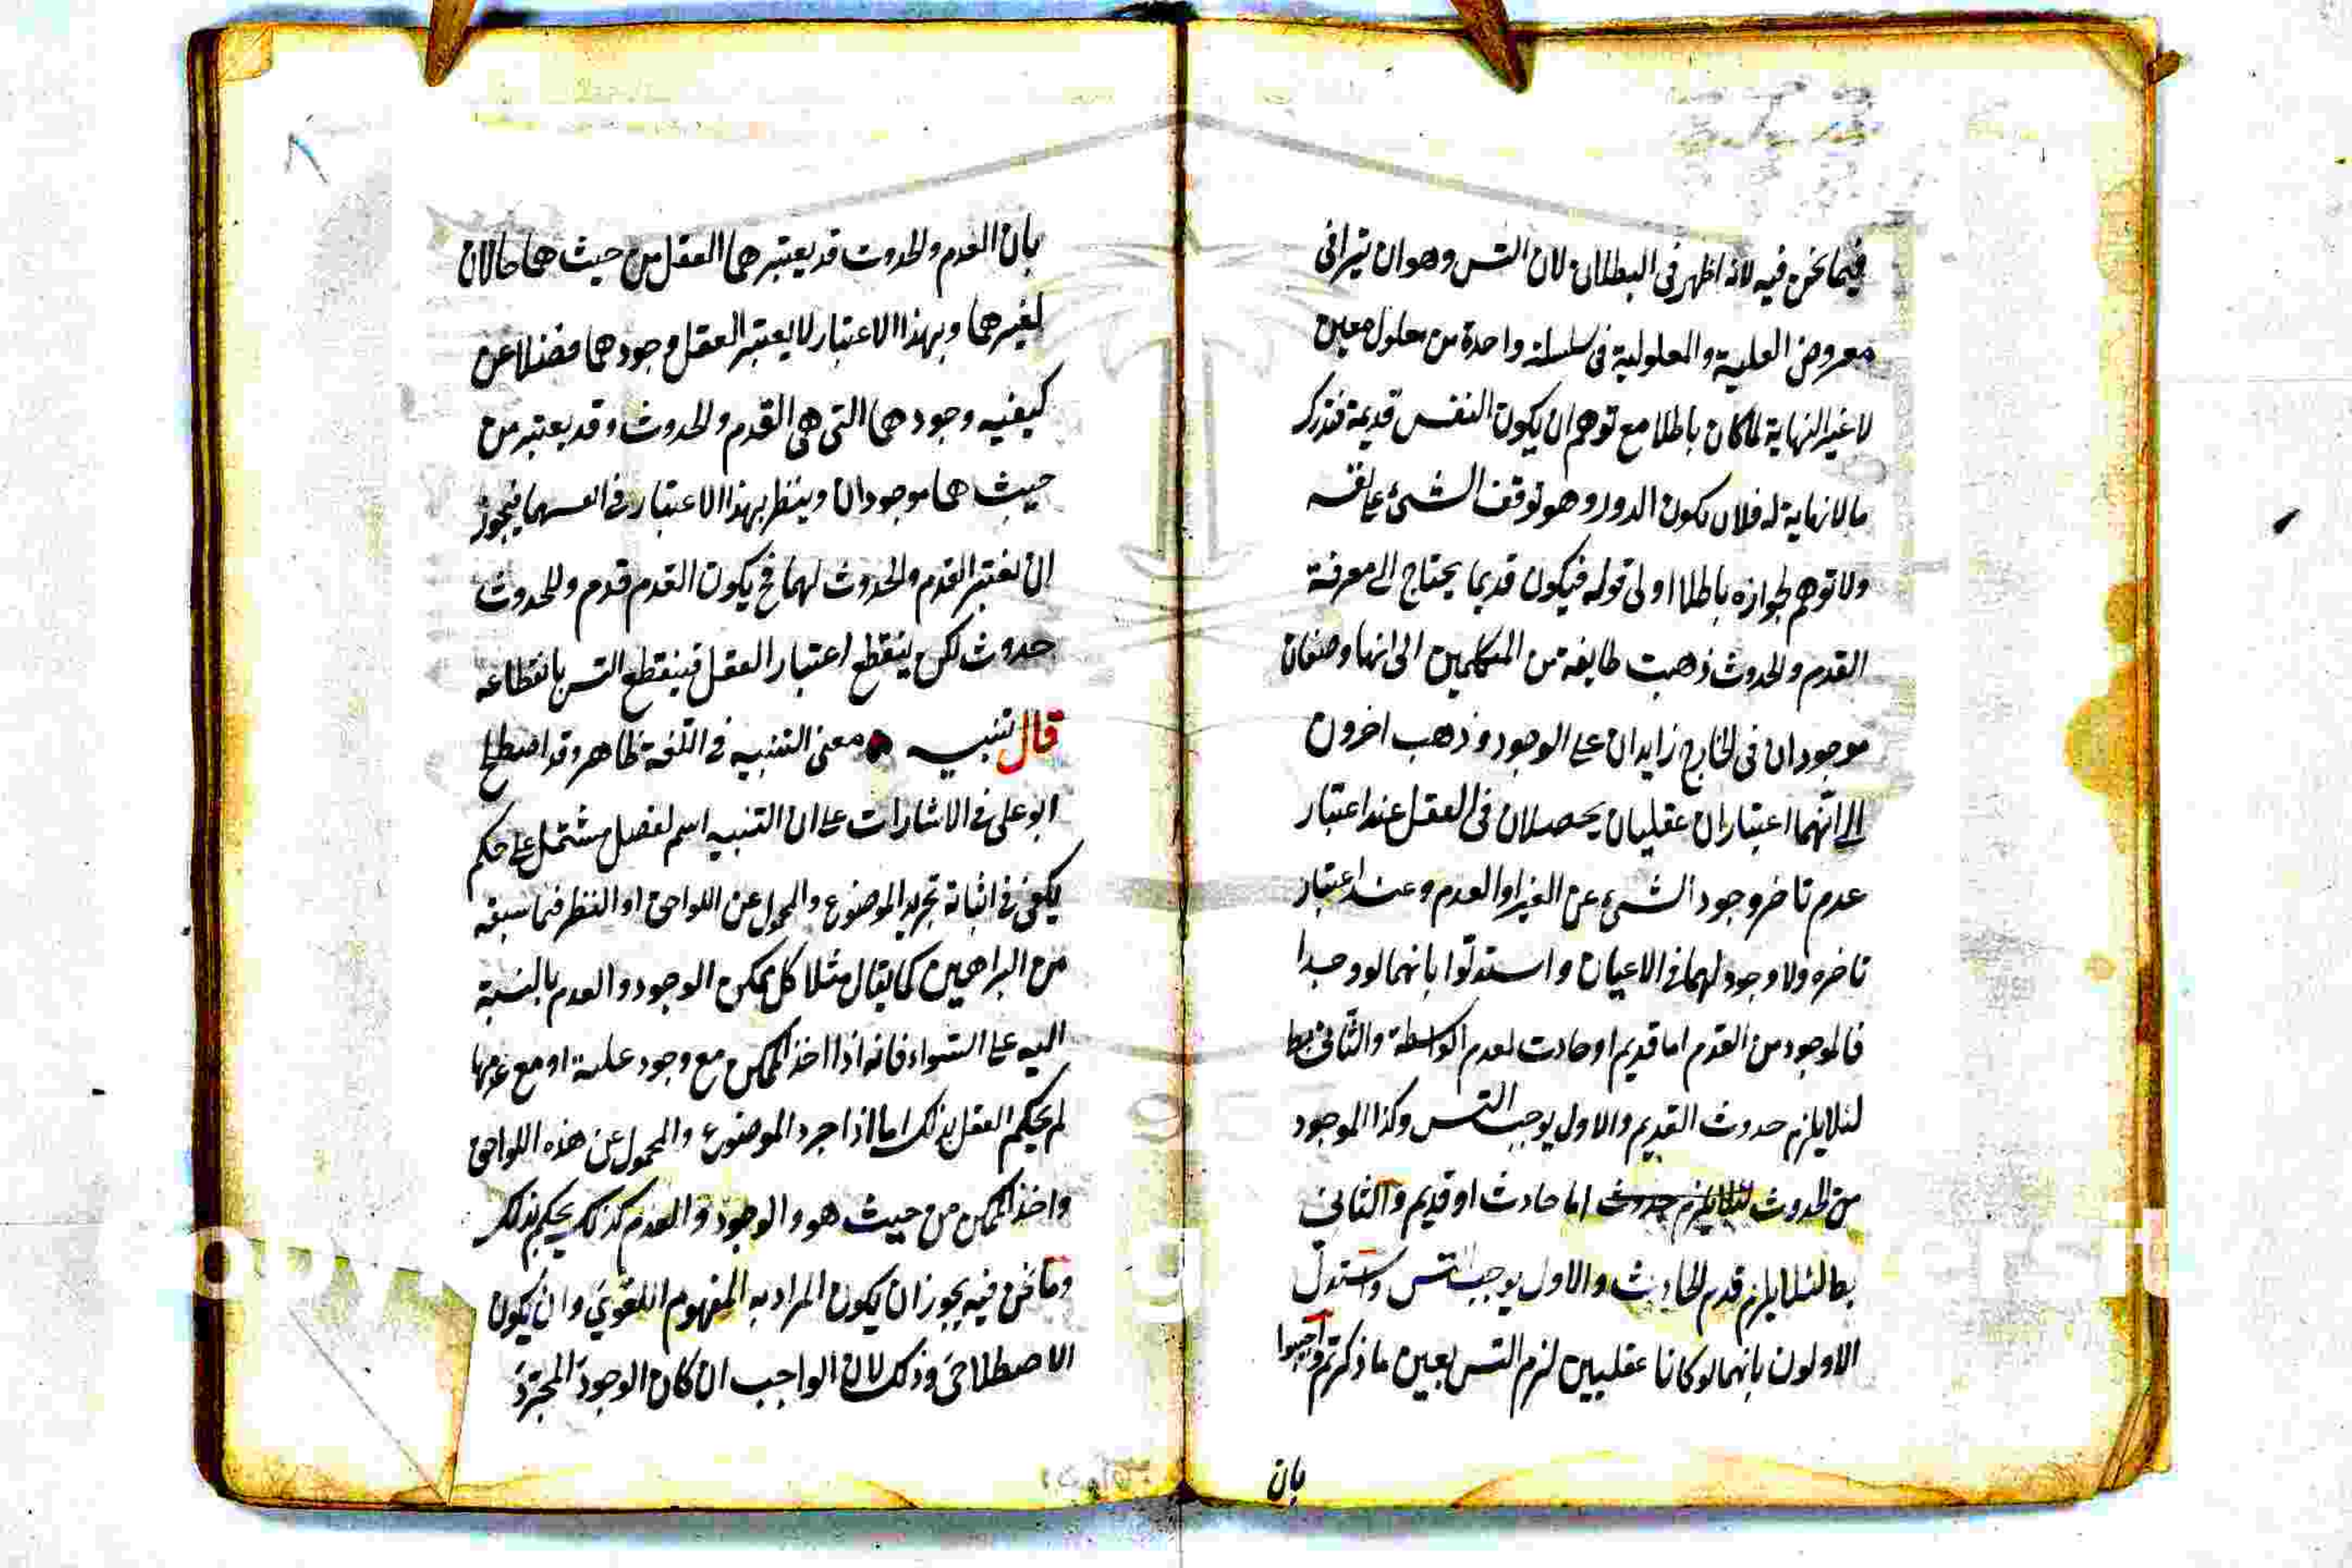 فيما نحن فيه لانه اظهر فى البطلان لان التس وهو ان يتراقى
معروض العلية والمعلولية فى سلسلة واحدة من معلول معين
لا غير النهاية لما كان باطلا مع توهم ان يكون النفس قديمة فتدرك
ما لا نهاية له فلان يكون الدور وهو توقف الشئ على نفسه
ولا توهم لجوازه باطلا اولى قوله فيكون قديما يحتاج الى معرفة
القدم والحدوث ذهبت طايفة من المتكلمين الى انها وصفان
موجودان فى الخارج زايدان على الوجود وذهب اخرون
الى انهما اعتباران عقليان يحصلان فى العقل عند اعتبار
عدم تاخر وجود الشئ عن الغير او العدم وعند اعتبار
تاخره ولا وجود لهما فى الاعيان واستدلوا بانهما لو وجدا
فالموجود من القدم اما قديم او حادث لعدم الواسطة والثانى بط
لئلا يلزم حدوث القديم والاول يوجب التس وكذا الموجود
من الحدوث لئلا يلزم حدوث اما حادث او قديم والثانى
بط لئلا يلزم قدم الحادث والاول يوجب التس واستدل
الاولون بانهما لو كانا عقليين لزم التس بعين ما ذكرتم واجيبوا
بان
بان القدم والحدوث قد يعتبرهما العقل من حيث هما حالان
لغيرهما وبهذا الاعتبار لا يعتبر العقل وجودهما فضلا عن
كيفيه وجودهما التى هى القدم والحدوث وقد يعتبر من
حيث هما موجودان وينظر بهذا الاعتبار فى انفسهما فيجوز
ان يعتبر القدم والحدوث لهما فح يكون القدم قدم وللحدوث
حدوث لكن ينقطع اعتبار العقل فينقطع التس بانقطاعه
قال تنبيه معنى التنبيه فى اللغة ظاهر وقد اصطلح
ابو على فى الاشارات على ان التنبيه اسم لفصل مشتمل على حكم
يكفى فى اثباته تجريد الموضوع والمحمول عن اللواحق او النظر فيما سبقه
من البراهين كما يقال مثلا كل ممكن الوجود والعدم بالنسبة
اليه على السواء فانه اذا اخذ الممكن مع وجود علته او مع عدمها
لم يحكم العقل بذلك اما اذا جرد الموضوع والمحمول عن هذه اللواحق
واخذ الممكن من حيث هو والوجود والعدم كذلك يحكم بذلك
وما نحن فيه يجوز ان يكون المراد به المفهوم اللغوي وان يكون
الاصطلاحى وذلك لان الواجب ان كان الوجود المجرد